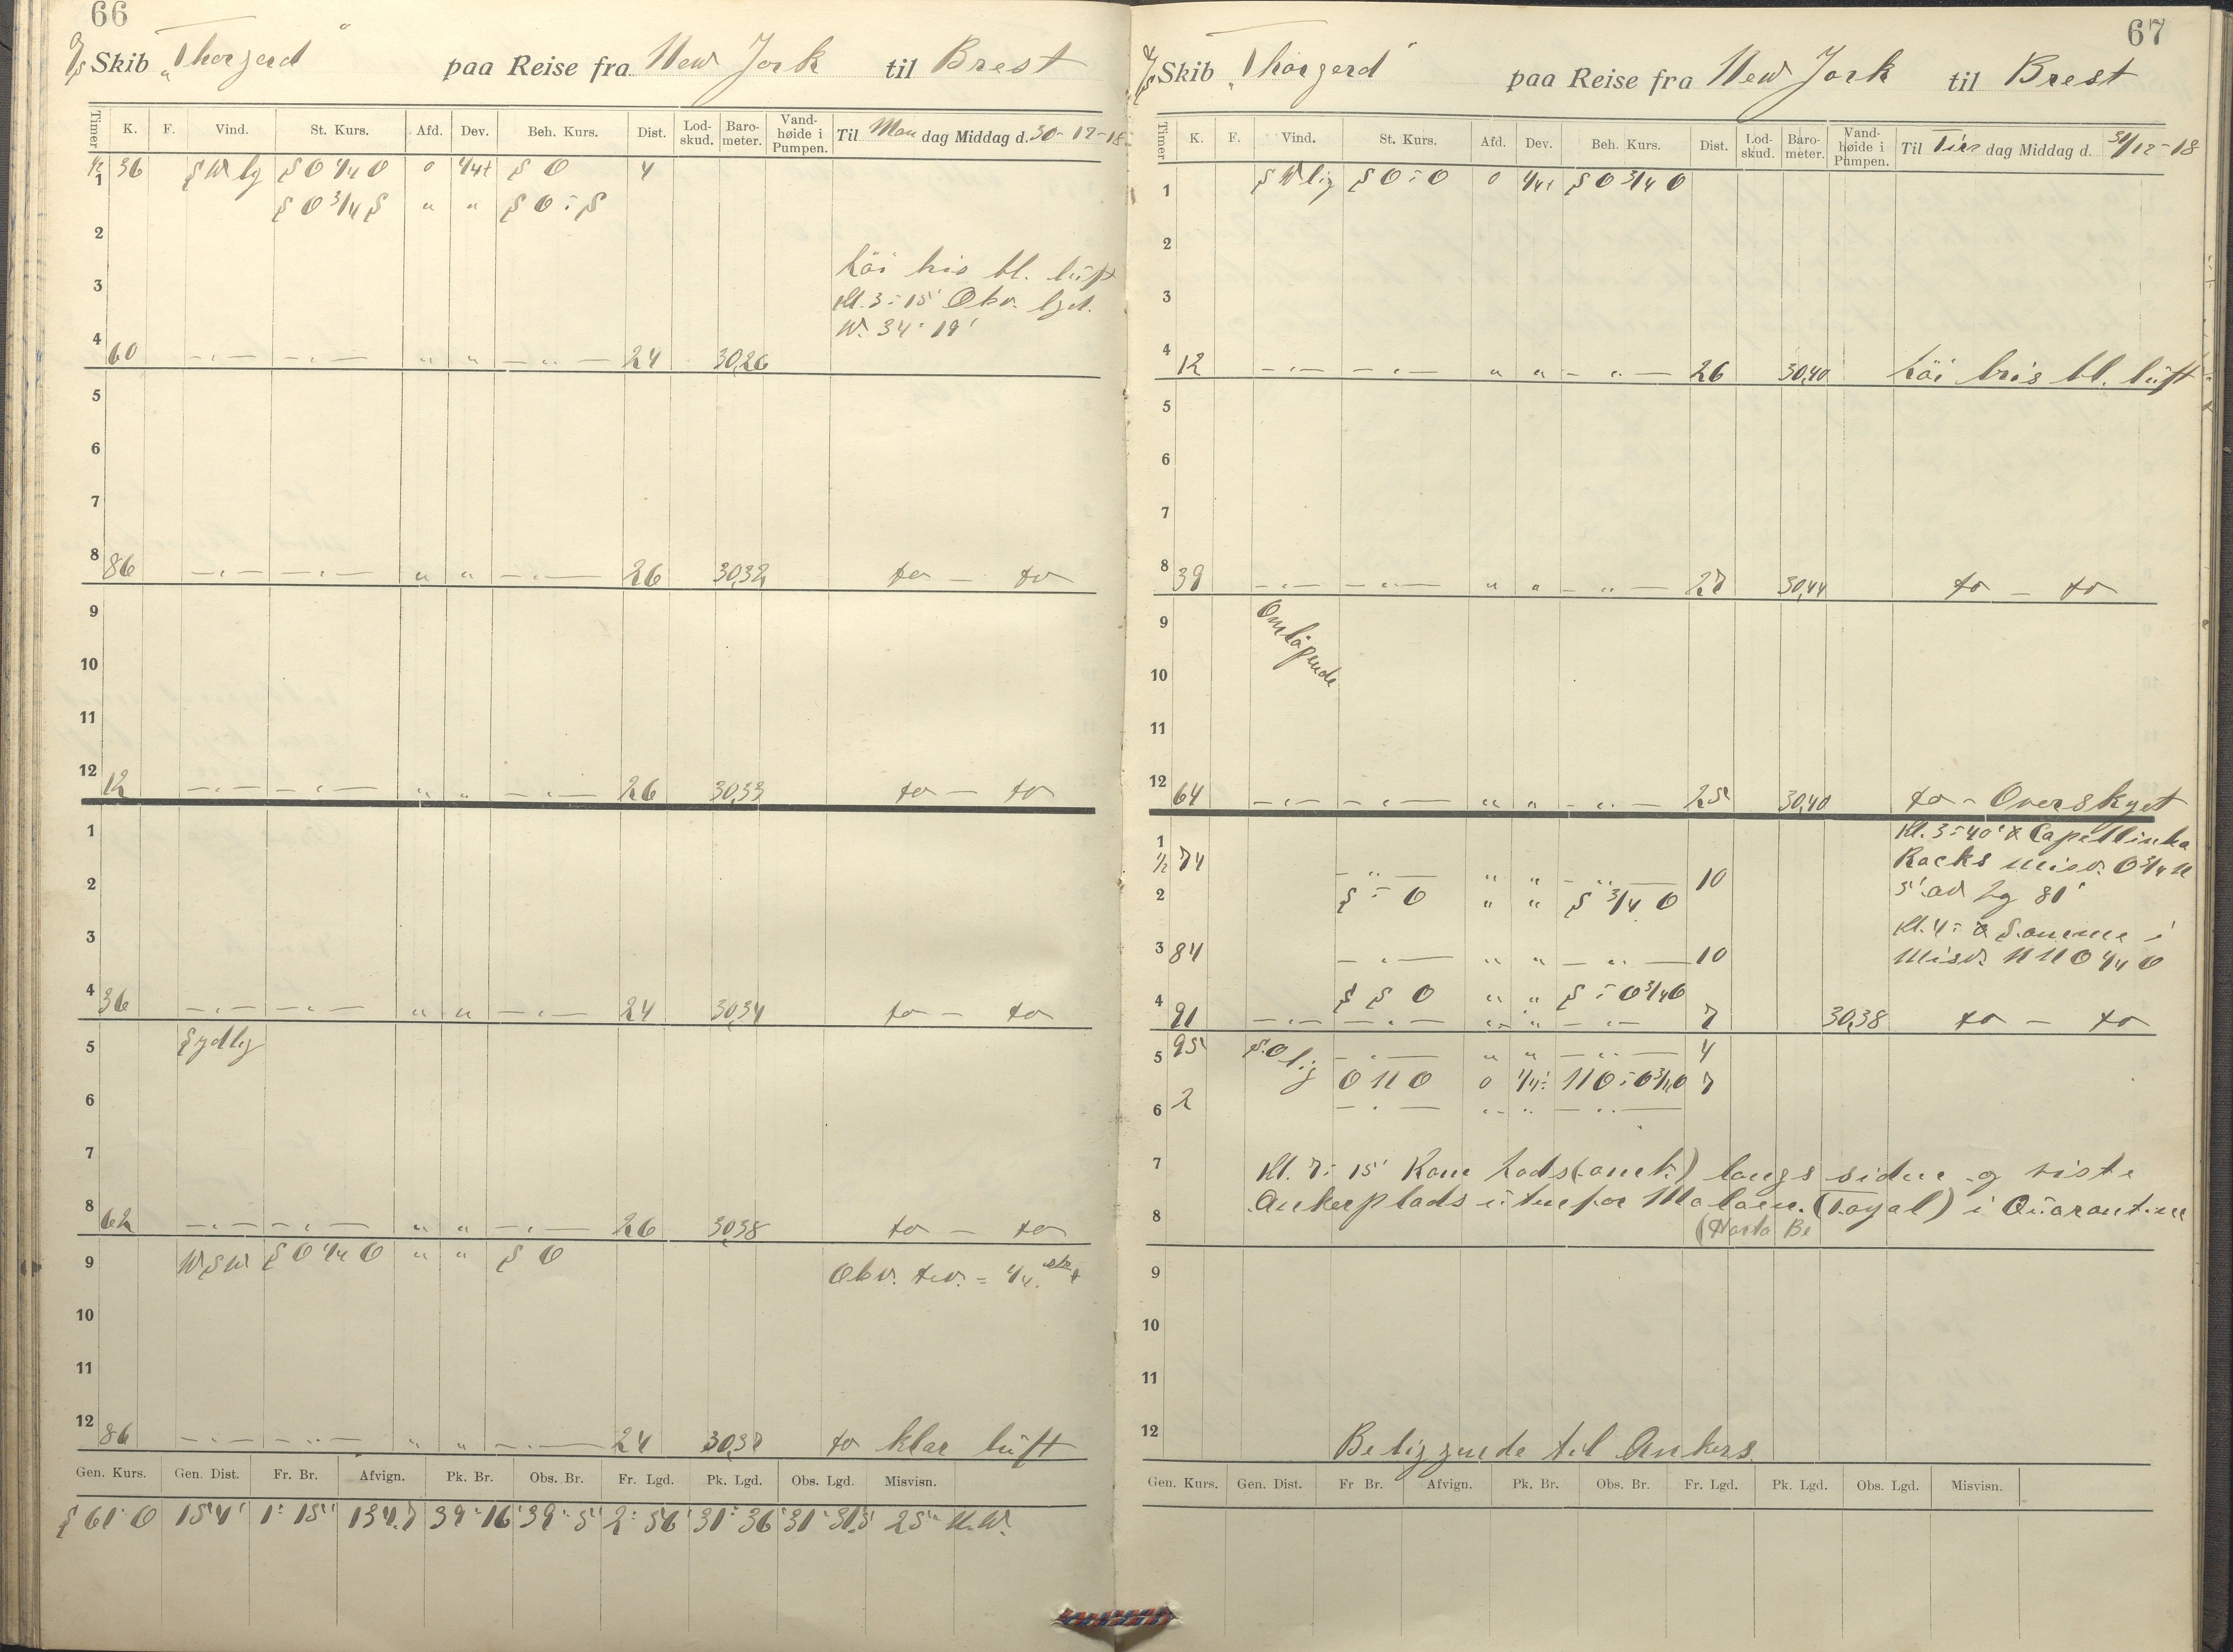 66
Skib „Thorgerd“ paa Reise fra New York til Brest
Timer K. F. Vind. St. Kurs. Afd. Dev. Beh. Kurs. Dist. Lod-skud. Baro-meter. Vand-høide i Pumpen. Til Man dag Middag d. 30-12-18
1/2 36 S W lg S O 1/4 O 0 1/4+ S O 4
1
S O 3/4 S " " S O : S
2
Löi bris bl. lüft
3
Kl. 3-15' Obv. lgd.
W. 34° 19'
4 60 -"- -"- " " -"- 24 30,26
5
6
7
8 86 -"- -"- " " -"- 26 30,32 to - to
9
10
11
12 12 -"- -"- " " -"- 26 30,33 to - to
1
2
3
4 36 -"- -"- " " -"- 24 30,34 to - to
5 Sydlig
6
7
8 62 -"- -"- " " -"- 26 30,38 to - to
9 W S W S O 1/4 O " " S O
Obv. dev. = 1/4
10
11
12 86 -"- -"- " " -"- 24 30,37 to klar lüft
Gen. Kurs. Gen. Dist. Fr. Br. Afvign. Pk. Br. Obs. Br. Fr. Lgd. Pk. Lgd. Obs. Lgd. Misvisn.
S 61° O 154' 1° 15' 134.7 39° 16' 39° 5' 2° 56' 31° 36' 31° 31,5' 25° N.W.
67
Skib „Thorgerd“ paa Reise fra New York til Brest
Timer K. F. Vind. St. Kurs. Afd. Dev. Beh. Kurs. Dist. Lod-skud. Baro-meter. Vand-høide i Pumpen. Til Tirs dag Middag d. 31/12-18
1 S W lig S O : O 0 1/4+ S O 3/4 O
2
3
4 12 -"- -"- " " -"- 26 30,40 Löi bris bl. lüft
5
6
7
8 39 -"- -"- " " -"- 27 30,44 to - to
9 Omløpende
10
11
12 64 -"- -"- " " -"- 25 30,40 to - Overskyet
1
Kl. 3-40' Capellinha
1/2 74 -"- " " -"- 10
Rocks misv. O 3/4 N
2 S : O " " S 3/4 O
5' av Lg 81'
Kl. 4: Samme i
3 84 -"- " " -"- 10
Misv. N N O 1/4 O
4 S S O " " S : O 3/4 O
91 -"- -"- " " -"- 7 30,38 to - to
5 95 S.O lig -"- " " -"- 4
O N O 0 1/4 N O : O 3/4 O 7
6 2 -"- " " -"-
7 Kl. 7-15' Kom Lods langs siden og viste
Ankerplads utenfor Moloen. (Fayal) i Quarantine
8 (Horta
9
10
11
12 Beliggende til Ankers.
Gen. Kurs. Gen. Dist. Fr Br. Afvign. Pk. Br. Obs. Br. Fr. Lgd. Pk. Lgd. Obs. Lgd. Misvisn.